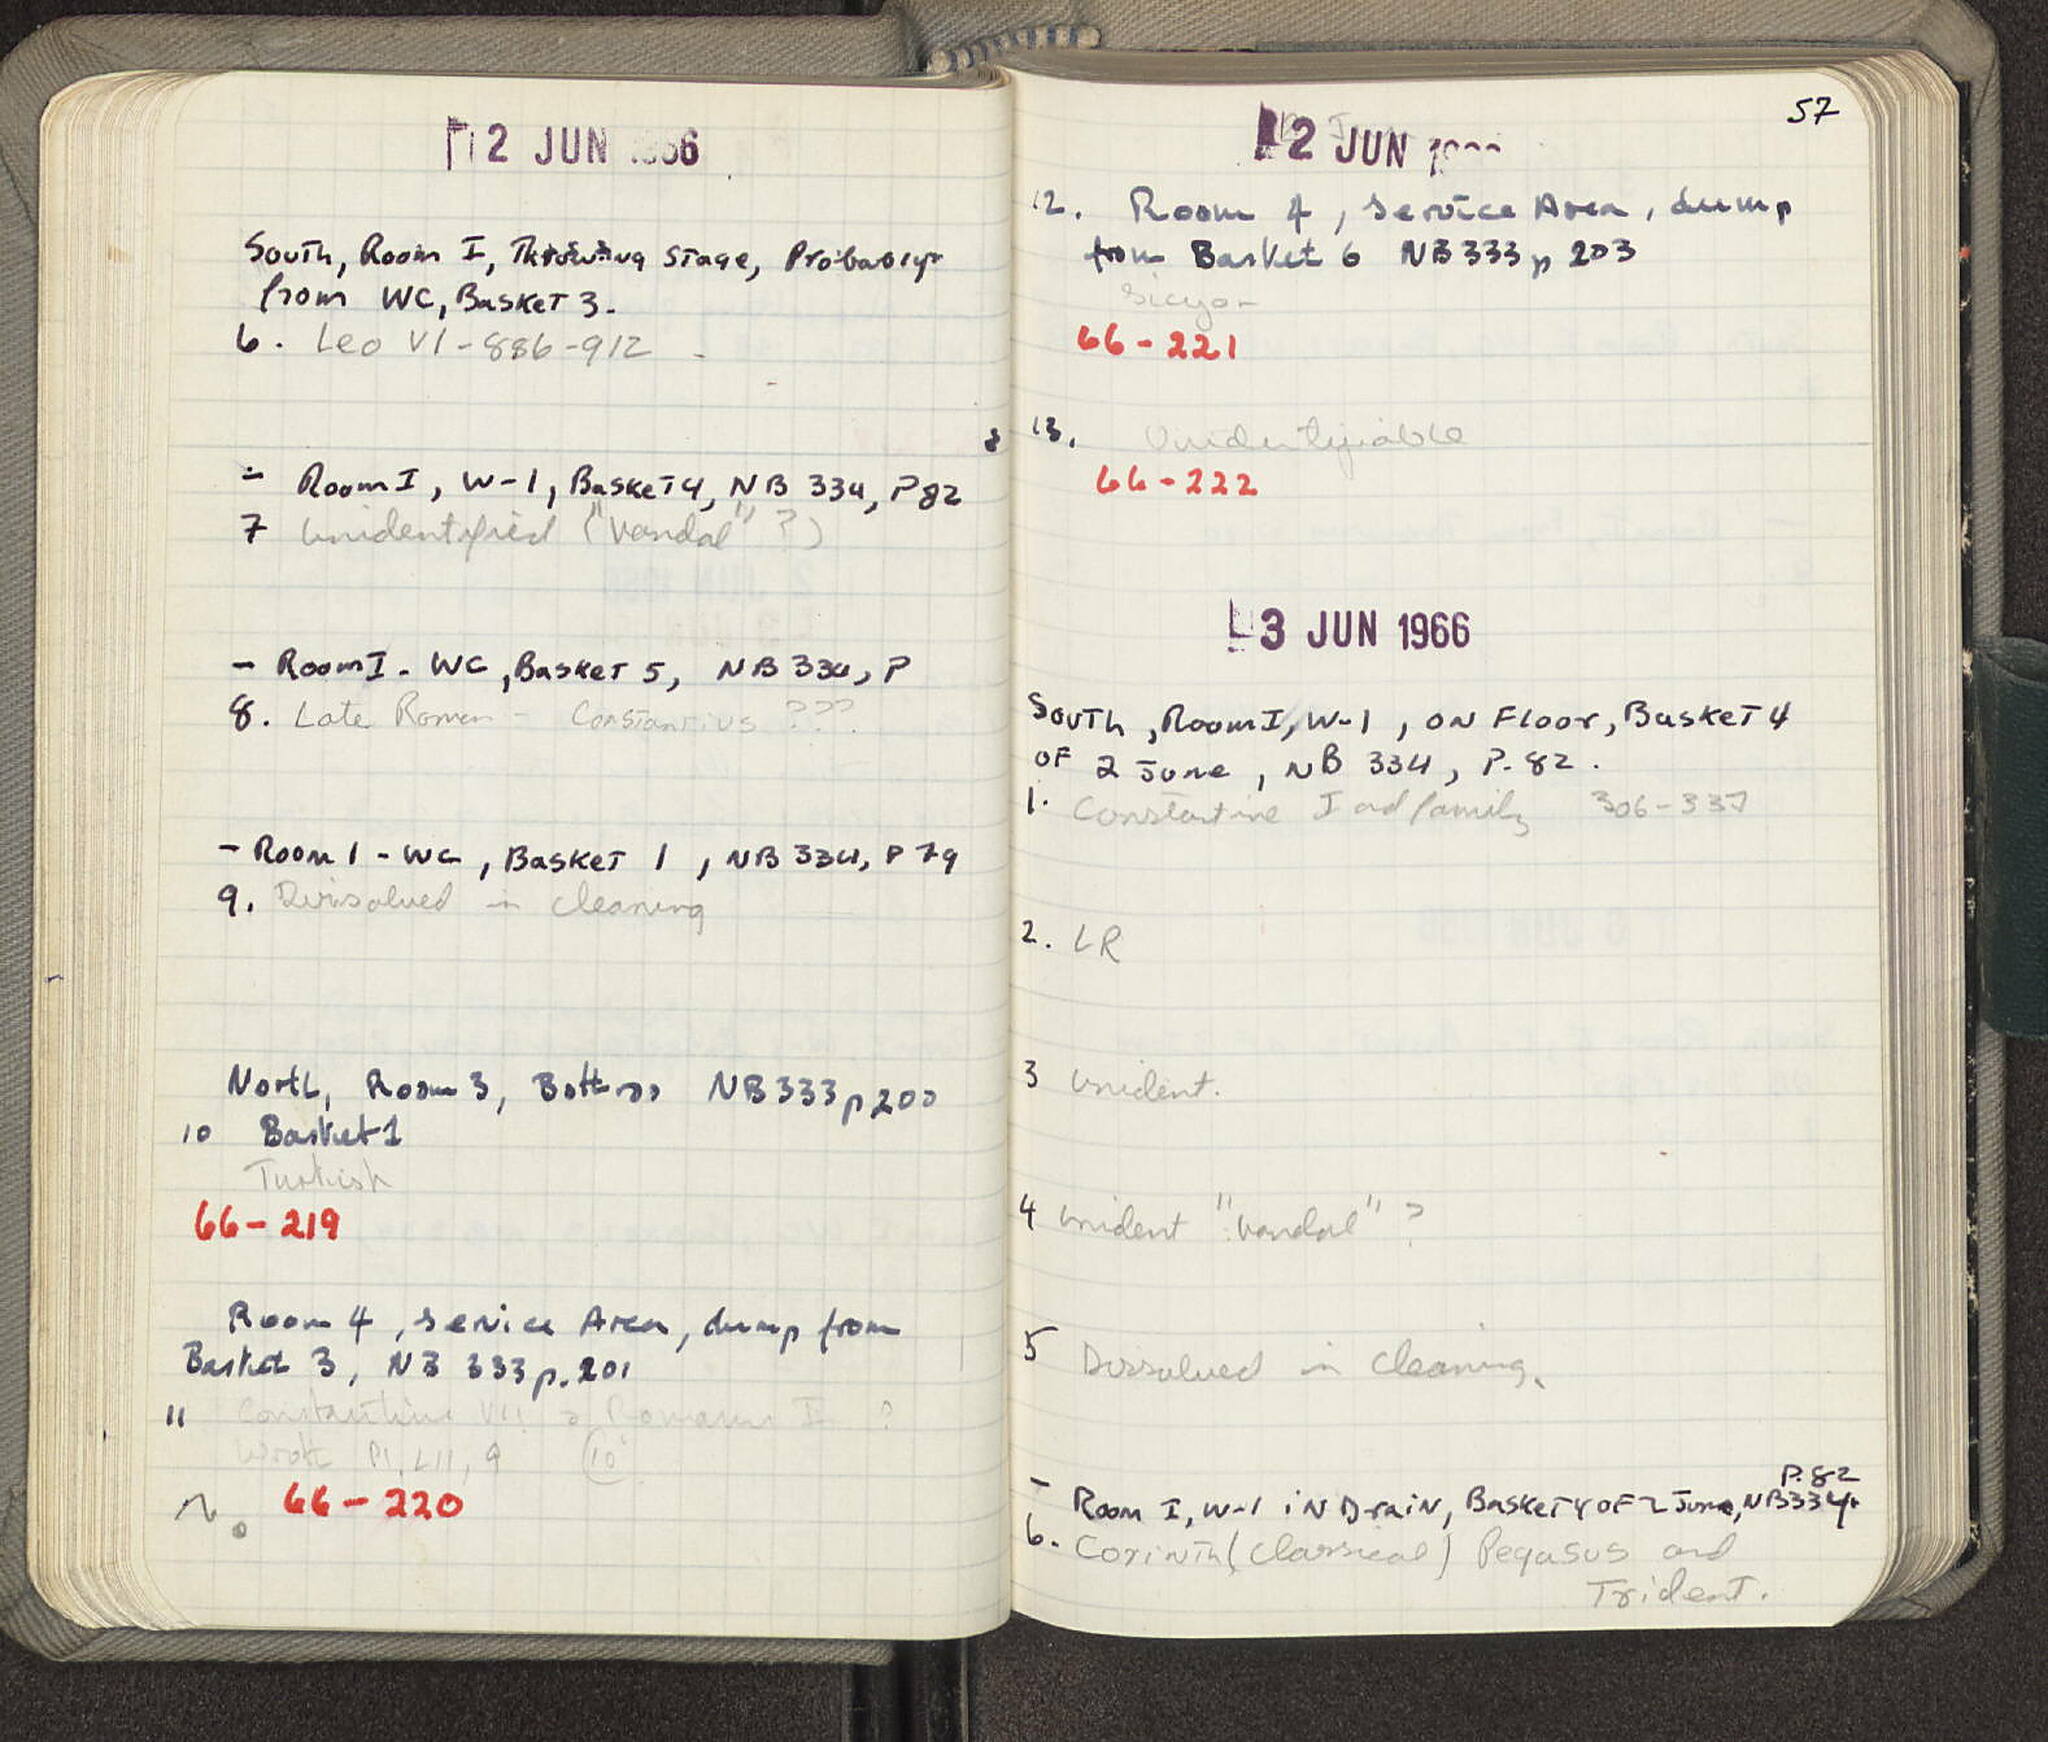 2 JUN 1966
South, Room I, Throwing Stage, Probably
from WC, Basket 3.
6. Leo VI - 886-912
- Room I, W-1, Basket 4, NB 334, P 82
7 Unidentified ("Vandal" ?)
- Room I - WC, Basket 5, NB 334, P
8. Late Roman - Constantius ???
- Room 1 - WC, Basket 1, NB 334, P 79
9. Dissolved in cleaning
North, Room 3, Bottros NB 333 p 200
10 Basket 1
Turkish
66-219
Room 4, Service Area, dump from
Basket 3, NB 333 p. 201
11 Constantine VII & Romanus I ?
Wroth Pl. LII, 9 10
66-220
57
2 JUN
12. Room 4, Service Area, dump
from Basket 6 NB 333 p 203
Sicyon
66-221
13. Unidentifiable
66-222
3 JUN 1966
South, Room I, W-1, on Floor, Basket 4
of 2 June, NB 334, P. 82.
1. Constantine I and family 306-337
2. LR
3 Unident.
4 Unident "Vandal" ?
5 Dissolved in cleaning.
P. 82
- Room I, W-1 in Drain, Basket 4 of 2 June, NB 334.
6. Corinth (Classical) Pegasus and
Trident.